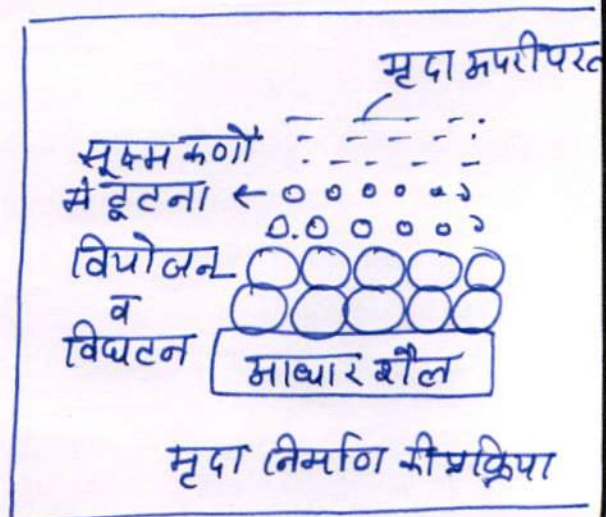 मृदा ऊपरी परत
सूक्ष्म कणों
में टूटना ←
वियोजन
व
विघटन
आधार शैल
मृदा निर्माण की प्रक्रिया